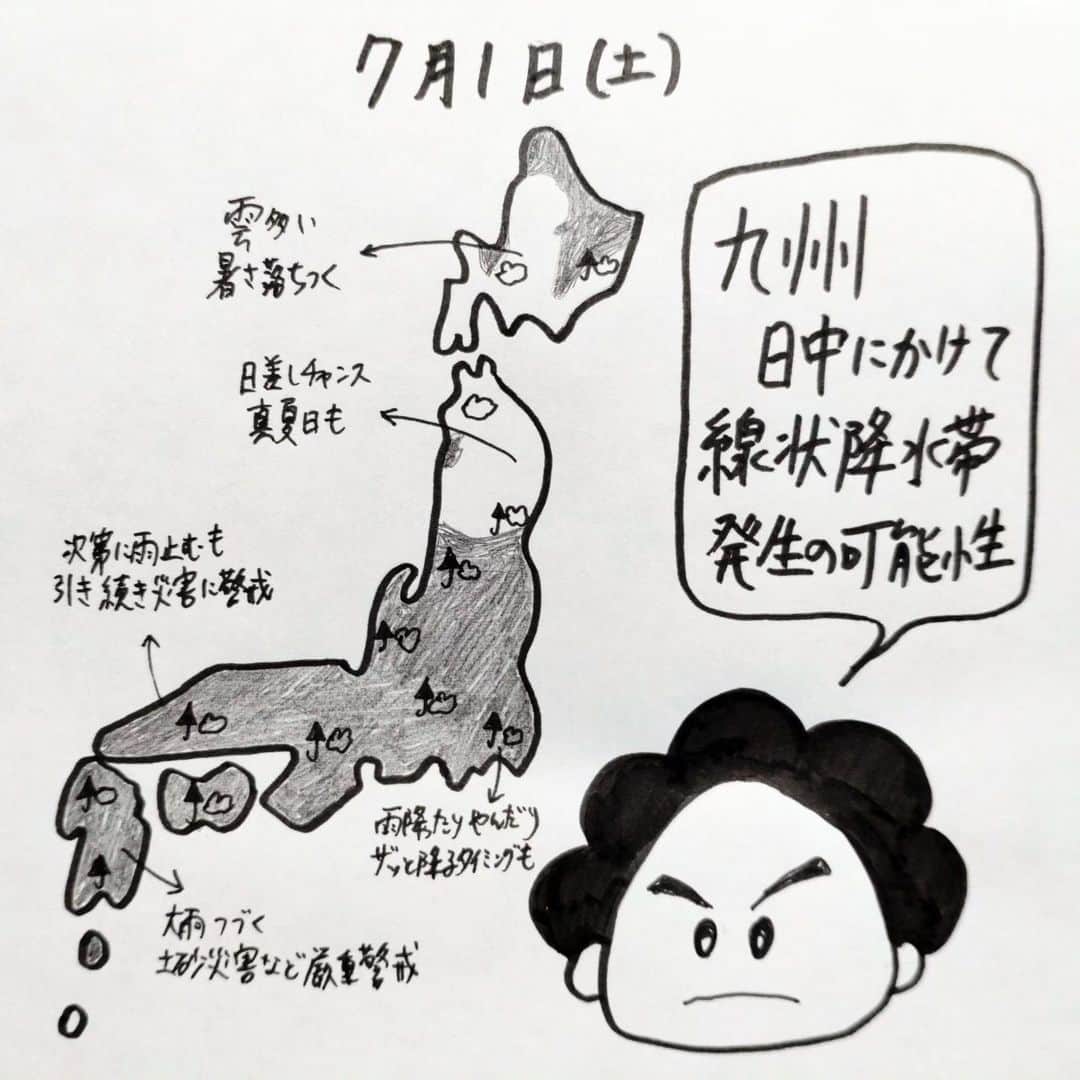 7月1日(土)
雲多い
暑さ落ちつく
九州
日中にかけて
線状降水帯
発生の可能性
日差しチャンス
真夏日も
次第に雨止むも
引き続き災害に警戒
雨降ったりやんだり
ザッと降るタイミングも
大雨つづく
土砂災害など厳重警戒